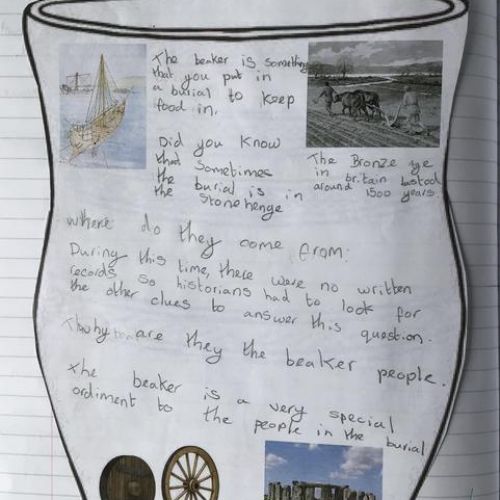 The beaker is something
that you put in
a burial to keep
food in.
Did you know
that sometimes
the burial is in
the Stonehenge
The Bronze age
in britain lasted
around 1500 years
where do they come from:
During this time, there were no written
records so historians had to look for
the other clues to answer this question.
why are they the beaker people.
the beaker is a very special
ordiment to the people in the burial